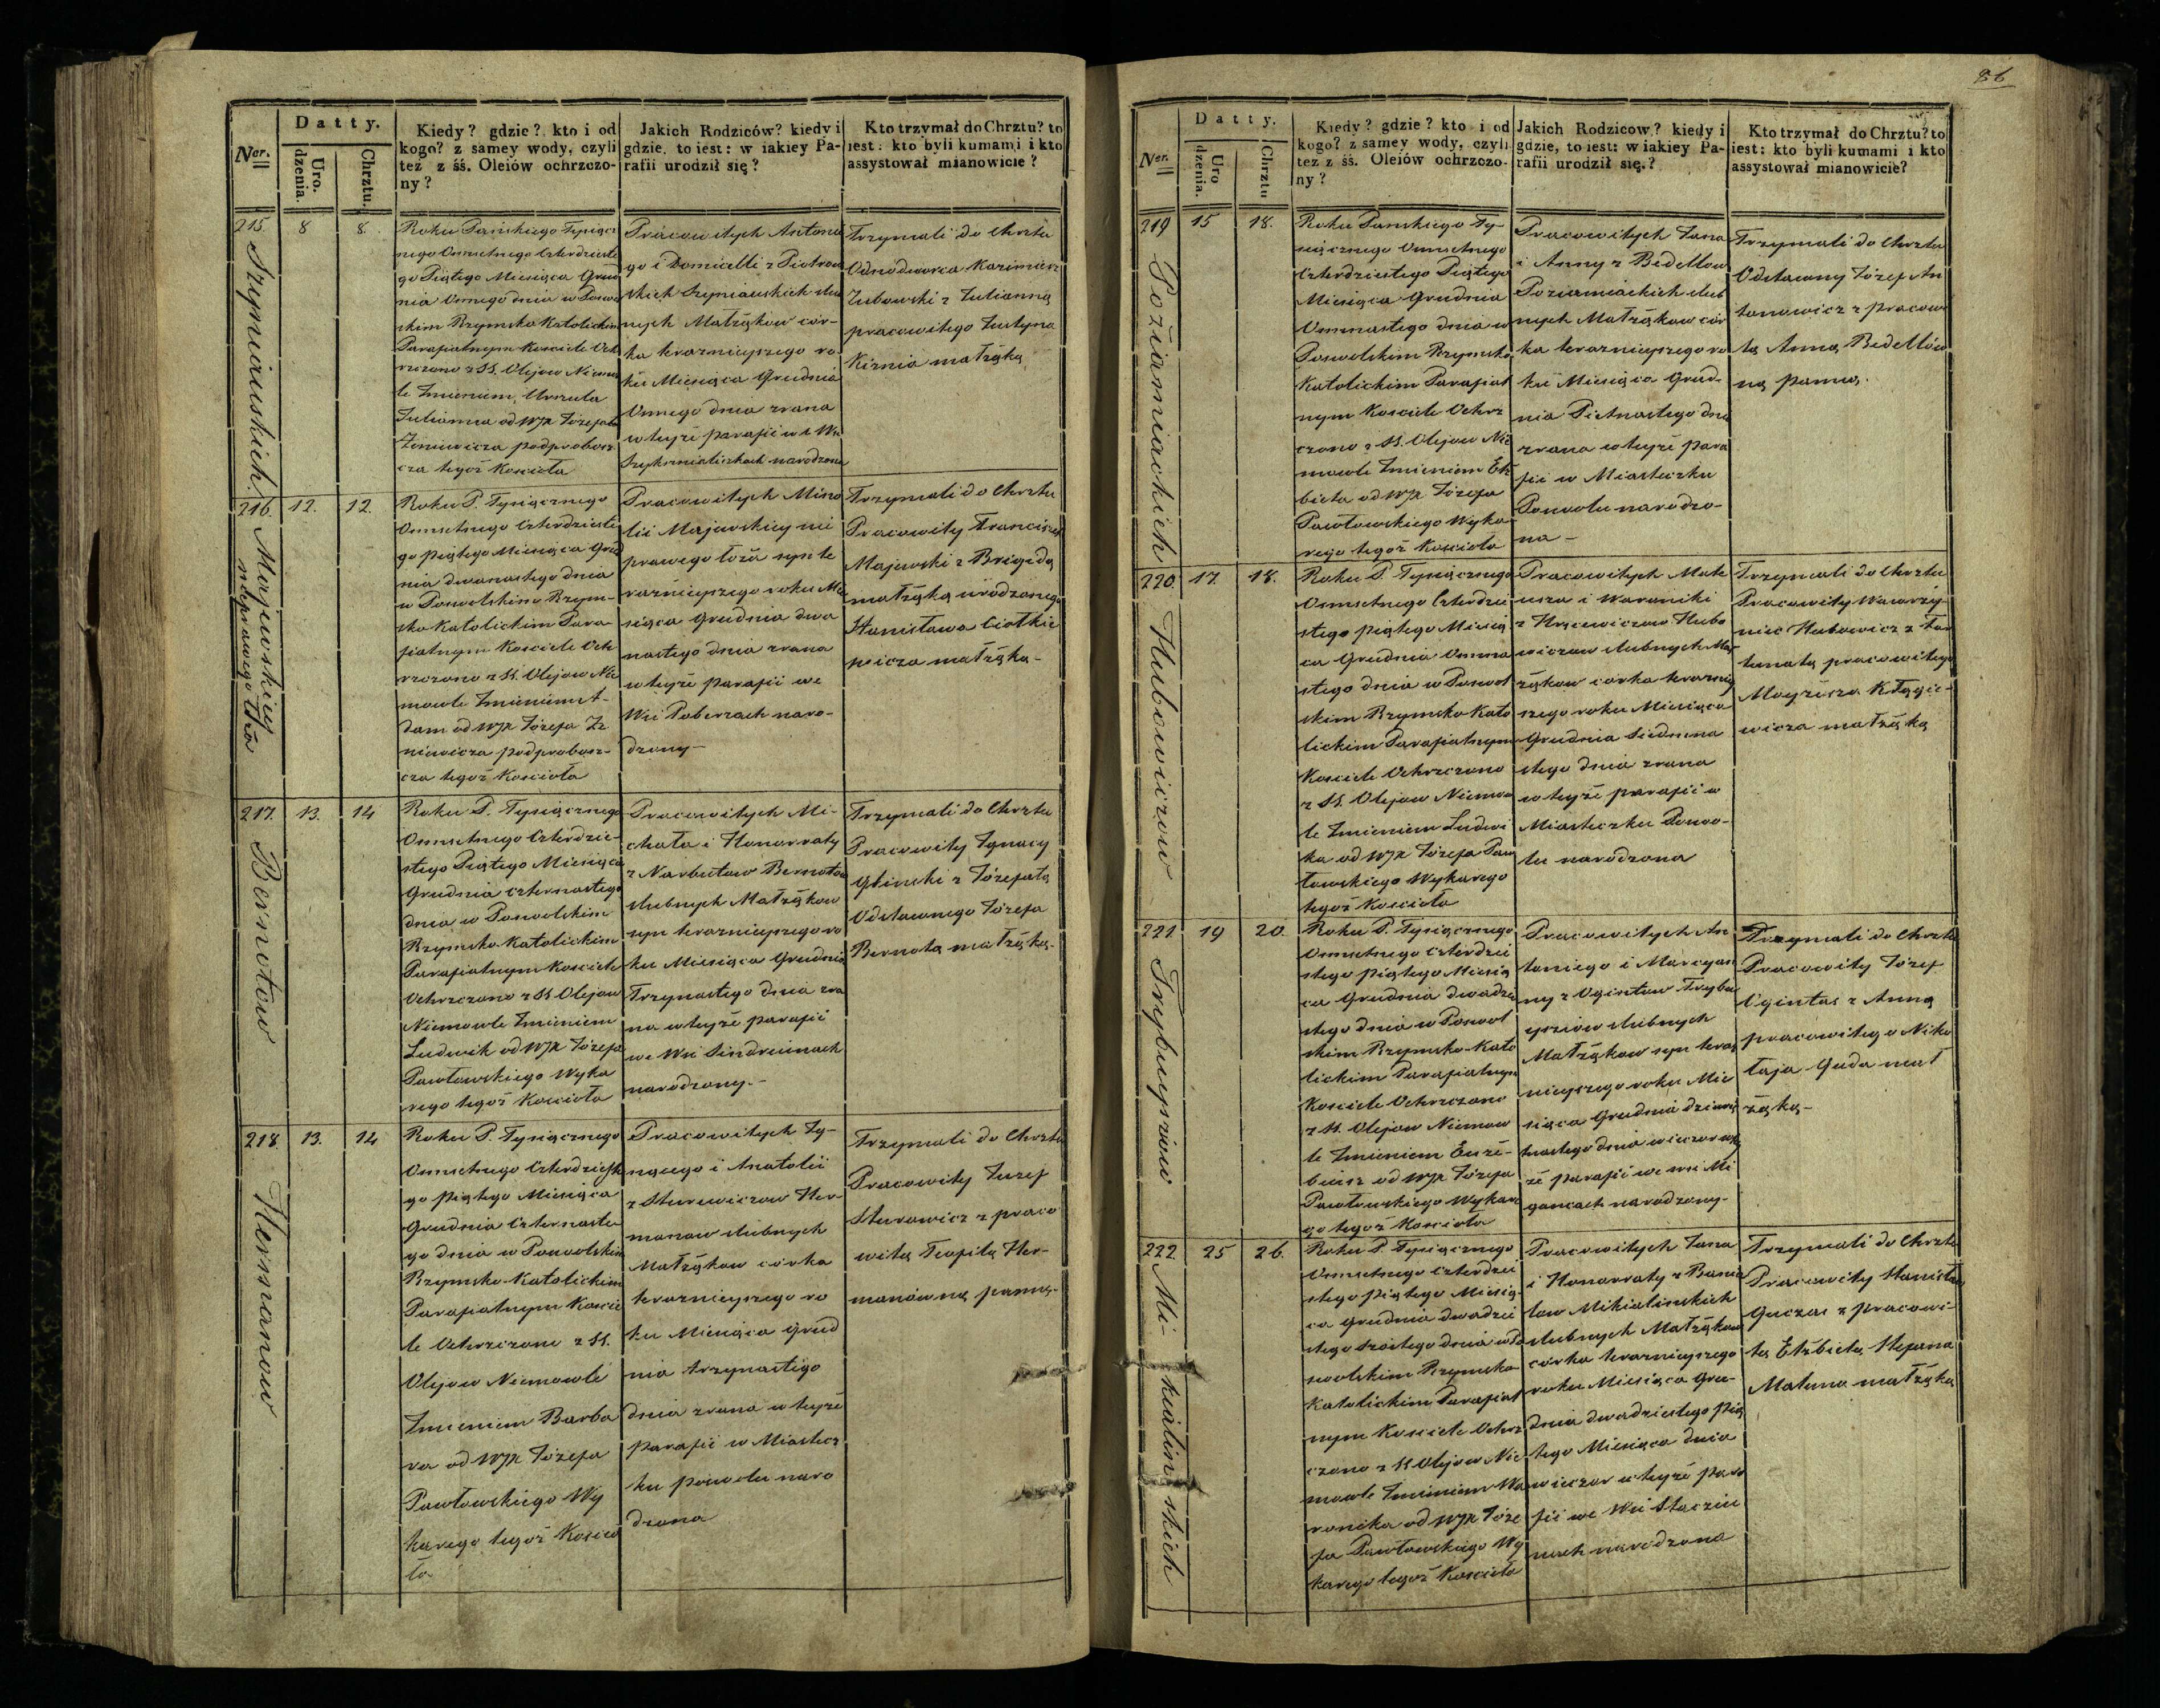 Ner.
Datty.
Uro.
dzenia.
Chrztu.
Kiedy? gdzie? kto i od
kogo? z samey wody, czyli
też z śś. Oleiów ochrzczo-
ny?
Jakich Rodziców? kiedy i
gdzie, to iest: w iakiey Pa-
rafii urodził się?
Kto trzymał do Chrztu? to
iest: kto byli kumami i kto
assystował mianowicie?
215.
8
8.
Szymiauskich
Roku Pańskiego Tysiącz
nego Osmsetnego Czterdzieste
go Piątego Miesiąca Grud
nia Osmego dnia w Poswo
lskim Rzymsko Katolickim
Parafialnym Kosciele Och
rzczono z SS. Olejow Niemow
le Imieniem Urszula
Julianna od WJX Józefa
podprobosz
cza tegoż Koscioła
Pracowitych Antonie
go i Domicelli z Piotrow
skich Szymiauskich slub
nych Małżąkow cór-
ka terazniejszego ro
ku Miesiąca Grudnia
Osmego dnia zrana
w tejże parafii we Wsi
narodzona
Trzymali do Chrztu
Odnodworca Kazimierz
Zubowski z Julianną
pracowitego Justyna
Kirnia małżąką
216.
12.
12.
Majewskiej
nieprawego łoża
Roku P. Tysiącznego
Osmsetnego Czterdzieste
go piątego Miesiąca Grud
nia dwanastego dnia
w Poswolskim Rzym-
sko Katolickim Para-
fialnym Kosciele Och
rzczono z SS. Olejow Nie
mowle Imieniem A-
dam od WJX Józefa
podprobosz-
cza tegoż Koscioła
Pracowitych
Majewskiej nie
prawego łoża syn te
razniejszego roku Mie
siąca Grudnia dwa
nastego dnia zrana
w tejże parafii we
Wsi Poberzach naro-
dzony-
Trzymali do Chrztu
Pracowity Franciszek
Majewski z Brigidą
małżąką urodzonego
Stanisława Ciotkie
wicza małżąka-
217.
13.
14
Bernotow
Roku P. Tysiącznego
Osmsetnego Czterdzie-
stego Piątego Miesiąca
Grudnia czternastego
dnia w Poswolskim
Rzymsko-Katolickim
Parafialnym Kosciele
Ochrzczono z SS Olejow
Niemowle Imieniem
Ludwik od WJX Józefa
Pawłowskiego Wyka
rego tegoż Koscioła
Pracowitych Mi-
chała i Honorraty
z Narbutow Bernotow
slubnych Małżąkow
syn terazniejszego ro
ku Miesiąca Grudnia
Trzynastego dnia zra
na w tejże parafii
we Wsi Sindriunach
narodzony.-
Trzymali do Chrztu
Pracowity Ignacy
Glinski z Józefatą
Odstawnego Józefa
Bernota małżąką-
218.
13.
14
Hermanow
Roku P. Tysiącznego
Osmsetnego Czterdzieste
go piątego Miesiąca
Grudnia Czternaste
go dnia w Poswolskim
Rzymsko-Katolickim
Parafialnym Koscie
le Ochrzczono z SS.
Olejow Niemowle
Imieniem Barba
ra od WJX Józefa
Pawłowskiego Wy
karego tegoż Koscio
ła
Pracowitych Ig-
nącego i Anatolii
z Sturewiczow Her-
manow slubnych
Małżąkow córka
terazniejszego ro
ku Miesiąca Grud
nia trzynastego
dnia zrana w tejże
parafii w Miastecz
ku poswolu naro
dzona
Trzymali do Chrztu
Pracowity Juzef
Sturowicz z praco
witą Teofilą Her-
manówną panną-
86
Ner.
Datty.
Uro
dzenia.
Chrztu
Kiedy? gdzie? kto i od
kogo? z samey wody, czyli
też z śś. Oleiów ochrzczo-
ny?
Jakich Rodzicow? kiedy i
gdzie, to iest: w iakiey Pa-
rafii urodził się.?
Kto trzymał do Chrztu? to
iest: kto byli kumami i kto
assystował mianowicie?
219
15
18.
Pożiarniackich
Roku Panskiego Ty-
siącznego Osmsetnego
Czterdziestego Piątego
Miesiąca Grudnia
Osmnastego dnia w
Poswolskim Rzymsko
Katolickim Parafial
nym Kosciele Ochrz
czono z SS. Olejow Nie
mowle Imieniem Elż
bieta od WJX Józefa
Pawłowskiego Wyka
rego tegoż Koscioła
Pracowitych Jana
i Anny z Bedellow
Poziarniackich slub
nych Małżąkow cór
ka terazniejszego ro
ku Miesiąca Grud-
nia Pietnastego dnia
zrana w tejże para
fii w Miasteczku
Poswolu narodzo-
na -
Trzymali do Chrztu
Odstawny Józef An
tonowicz z pracowi
tą Anną Bedellów
ną panną.
220.
17.
18.
Hubowiczow
Roku P. Tysiącznego
Osmsetnego Czterdzie
stego piątego Miesią
ca Grudnia Osmna
stego dnia w Poswol
skim Rzymsko Kato
lickim Parafialnym
Kosciele Ochrzczono
z SS. Olejow Niemow
le Imieniem Ludwi
ka od WJX Józefa Paw
łowskiego Wykarego
tegoż Koscioła
Pracowitych Mate
usza i Waroniki
z Hubo
wiczow slubnych Mał
żąkow corka terazniej
szego roku Miesiąca
Grudnia Siedmna
stego dnia zrana
w tejże parafii w
Miasteczku Poswo-
lu narodzona
Trzymali do Chrztu
Pracowity Wawrzy-
niec Hubowicz z For
tunatą pracowitego
małżąką
221.
19
20.
Trybuyszow
Roku P. Tysiącznego
Osmsetnego Czterdzie
stego piątego Miesią
ca Grudnia dwadzie
stego dnia w Poswol
skim Rzymsko-Kato
lickim Parafialnym
Kosciele Ochrzczono
z SS. Olejow Niemow
le Imieniem Euze-
biusz od WJX Józefa
Pawłowskiego Wykare
go tegoż Koscioła
Pracowitych An
toniego i Marcyan
ny z Ogintow Trybu
yszów slubnych
Małżąkow syn teraz
niejszego roku Mie
siąca Grudnia dziewię
tnastego dnia wieczorem w tej
że parafii we wsi Mi
goncach narodzony-
Trzymali do Chrztu
Pracowity Józef
Ogintas z Anną
pracowitego Niko
łaja Guda mał
żąką-
222.
25
26.
Mi-
kialinskich
Roku P. Tysiącznego
Osmsetnego Czterdzie
stego piątego Miesią-
ca Grudnia dwadzie
stego szostego dnia w Po
swolskim Rzymsko
Katolickim Parafial
nym Kosciele Ochrz
czono z SS Olejow Nie
mowle Imieniem Wa
ronika od WJX Józe
fa Pawłowskiego Wy
karego tegoż Koscioła
Pracowitych Jana
i Honorraty z
Mikialinskich
slubnych Małżąkow
córka terazniejszego
roku Miesiąca Gru-
dnia dwadziestego pią
tego Miesiąca dnia
wieczor w tejże para
fii we Wsi Stacziu
nach narodzona
Trzymali do Chrztu
Pracowity Stanisław
Guczas z pracowi-
tą Elżbietą Stefana
Matuna małżąką